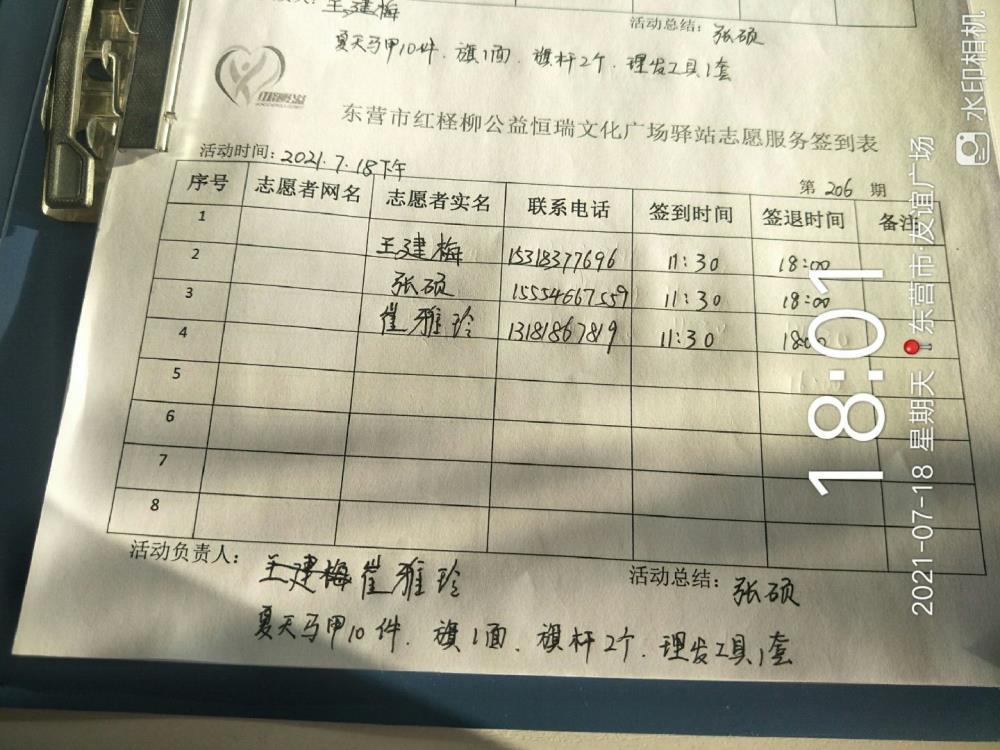 王建梅
活动总结：张硕
夏天马甲10件．旗1面．旗杆2个．理发工具1套
东营市红柽柳公益恒瑞文化广场驿站志愿服务签到表
活动时间：2021.7.18下午
第 206 期
序号 志愿者网名 志愿者实名 联系电话 签到时间 签退时间 备注
1
2 王建梅 15318377696 11:30 18:00
3 张硕 15554667559 11:30 18:00
4 崔雅玲 13181867819 11:30 18:00
5
6
7
8
活动负责人： 王建梅 崔雅玲
活动总结：张硕
夏天马甲10件．旗1面．旗杆2个．理发工具1套
18:01
2021-07-18 星期天 东营市·友谊广场
水印相机